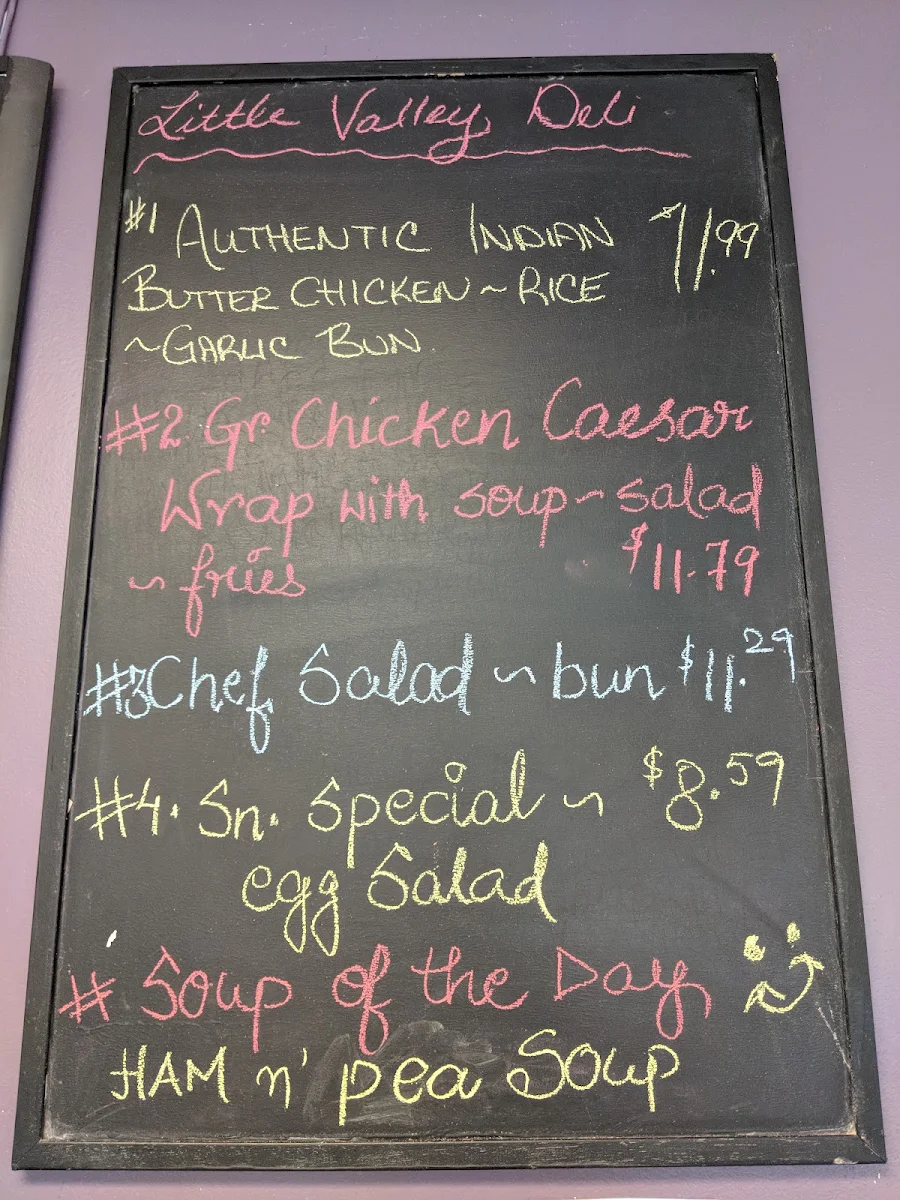 Little Valley Deli
#1 AUTHENTIC INDIAN $11.99
BUTTER CHICKEN ~ RICE
~ GARLIC BUN.
#2 Gr. Chicken Caesar
Wrap with soup ~ salad
~ fries $11.79
#3 Chef Salad ~ bun $11.29
#4. Sn. Special ~ $8.59
egg Salad
# Soup of the Day
HAM n' pea Soup